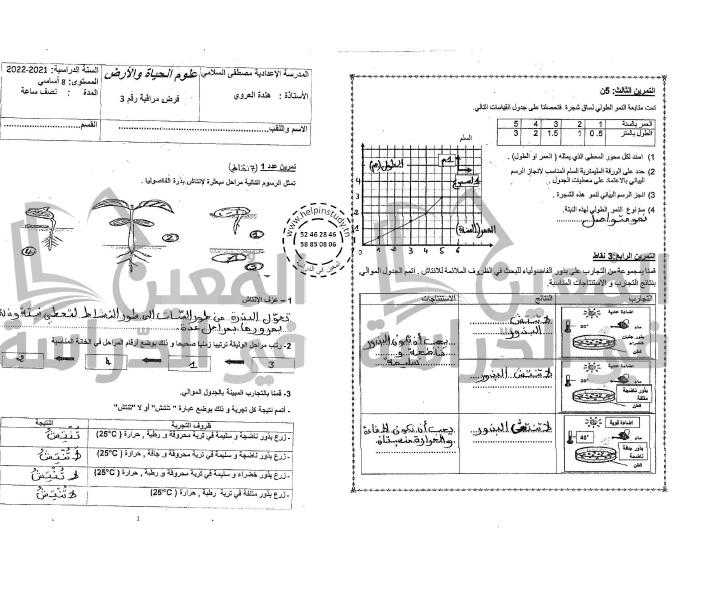 المدرسة الإعدادية مصطفى السلامي
علوم الحياة والأرض
السنة الدراسية: 2021-2022
الأستاذة : هندة العروي
فرض مراقبة رقم 3
المستوى: 8 أساسي
المدة : نصف ساعة
الاسم واللقب:
القسم:
تمرين عدد 1 (7 نقاط)
تمثل الرسوم التالية مراحل مبعثرة لإنتاش بذرة الفاصوليا .
4
2
3
1
www.helpinstudy.tn
52 46 28 46
58 85 08 06
المعين في الدراسة
1 – عرّف الإنتاش
تحوّل البذرة من طور السبات الى طور النشاط لتعطي نبتة وذلك
بمرورها بمراحل عدة.
2- رتب مراحل الوثيقة ترتيبا زمنيا صحيحا و ذلك بوضع أرقام المراحل في الخانة المناسبة
3
1
4
2
3- قمنا بالتجارب المبينة بالجدول الموالي.
- أتمم نتيجة كل تجربة و ذلك بوضع عبارة " تنتش" أو لا "تنتش"
ظروف التجربة
النتيجة
- زرع بذور ناضجة و سليمة في تربة محروقة و رطبة , حرارة (25°C)
تُنْتِشُ
- زرع بذور ناضجة و سليمة في تربة محروقة و جافة , حرارة (25°C)
لا تُنْتِشُ
- زرع بذور خضراء و سليمة في تربة محروقة و رطبة , حرارة (25°C)
لا تُنْتِشُ
- زرع بذور متلفة في تربة رطبة , حرارة (25°C)
لا تُنْتِشُ
1
التمرين الثالث: 5ن
تمت متابعة النمو الطولي لساق شجرة فتحصلنا على جدول القياسات التالي.
العمر بالسنة 1 2 3 4 5
الطول بالمتر 0.5 1 1.5 2 3
1) اسند لكل محور المعطى الذي يمثله ( العمر او الطول) .
2) حدد على الورقة المليمترية السلم المناسب لانجاز الرسم
البياني بالاعتماد على معطيات الجدول .
3) انجز الرسم البياني لنمو هذه الشجرة .
4) سمّ نوع النمو الطولي لهذه النبتة.
نمو متواصل
السلم
الطول (م)
العمر (السنة)
التمرين الرابع: 3 نقاط
قمنا بمجموعة من التجارب على بذور الفاصولياء للبحث في الظروف الملائمة للانتاش , اتمم الجدول الموالي
بنتائج التجارب و الاستنتاجات المناسبة.
تجارب
النتائج
الاستنتاجات
اضاءة عادية
20°
ماء
قطن
لا تنتش
البذور
يجب أن تكون البذور
ناضجة و
سليمة
اضاءة عادية
20°
ماء
بذور ناضجة
متلفة
قطن
لا تنتش البذور
اضاءة قوية
40°
ماء
بذور جافة
ناضجة
قطن
لا تنتش البذور
يجب أن تكون الإضاءة
والحرارة مناسبتان
المعين
في الدراسة
المعين
في الدراسة